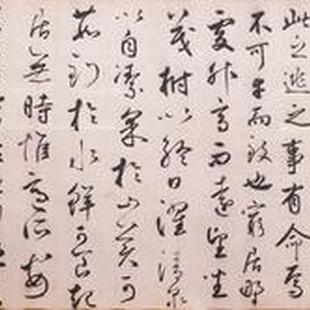 此而逃之是有命焉
不可幸而致也窮居野
處升高而遠望坐
茂樹以終日濯清泉
以自潔采於山美可
茹釣於水鮮可食起
居無時惟適所安